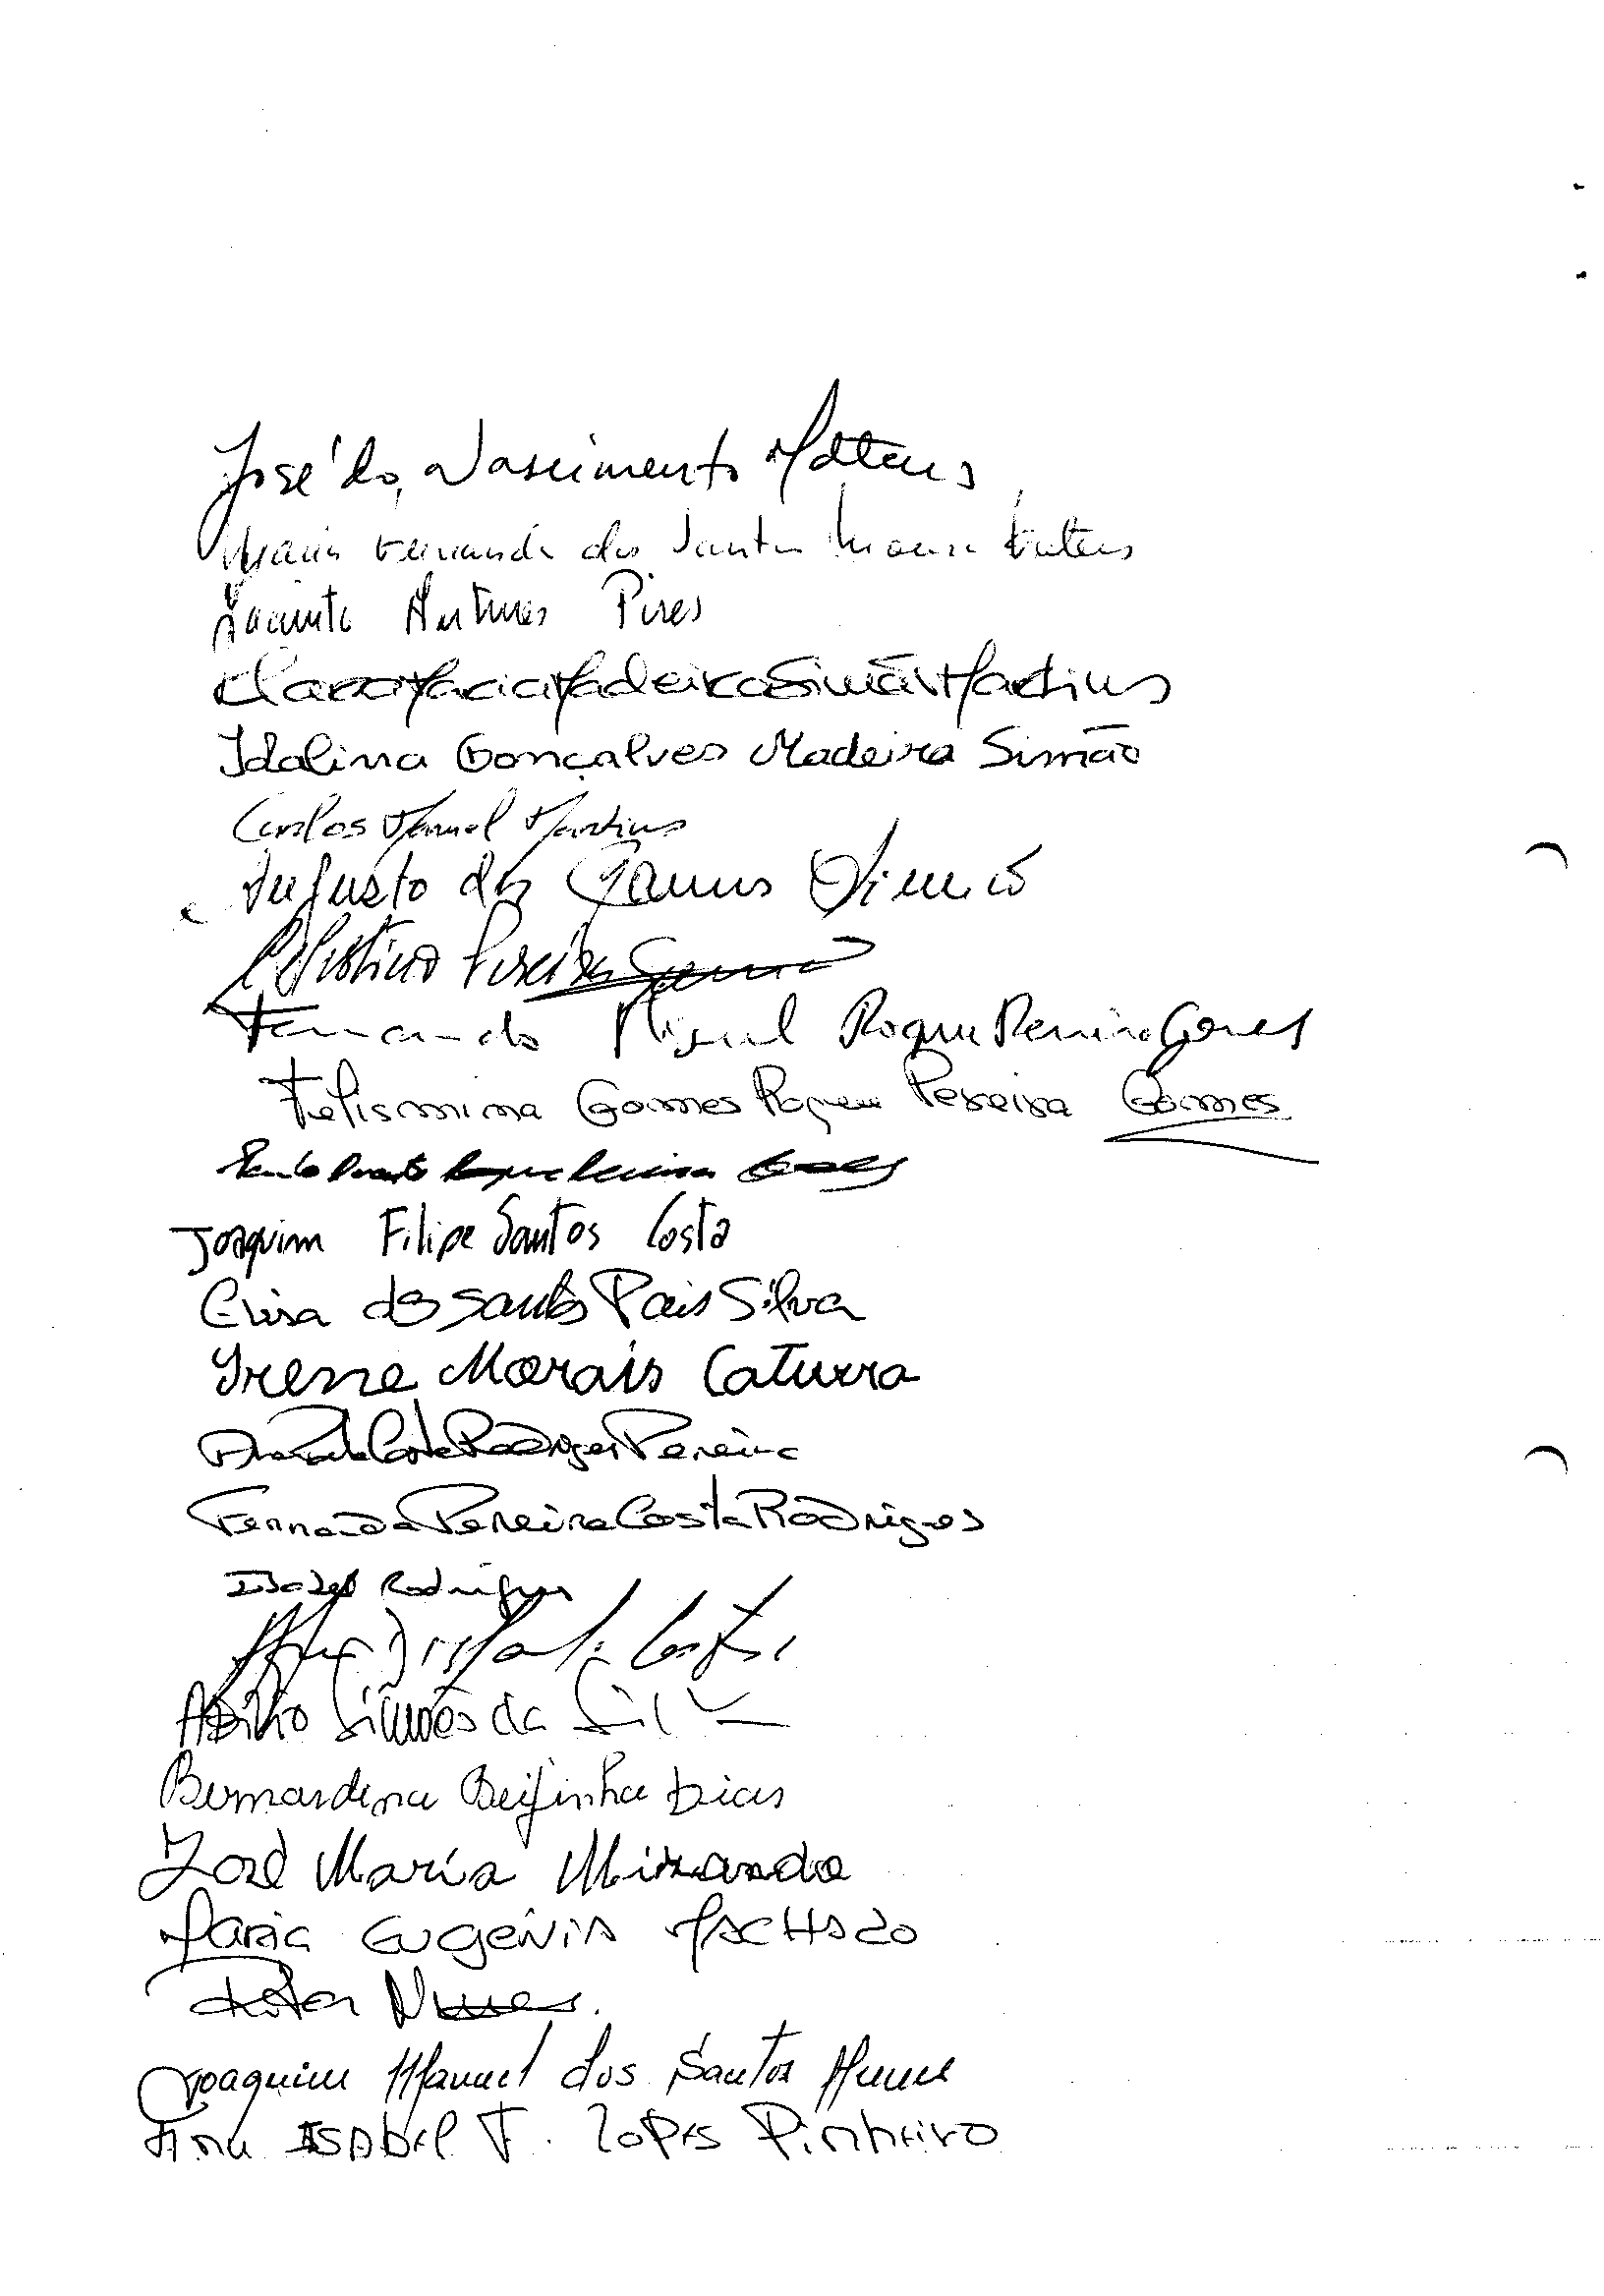 José do Nascimento Mateus
Maria Fernanda dos Santos Mateus
Jacinto Antunes Pires
Clara Maria Madeira Simão Martins
Idalina Gonçalves Madeira Simão
Carlos Manuel Martins
Augusto dos Simão
Celestino Pereira Gomes
Fernando Miguel Roque Pereira Gomes
Felismina Gomes Roque Pereira Gomes
Paulo Duarte Roque Pereira Gomes
Joaquim Filipe Santos Costa
Elisa dos Santos Pais Silva
Irene Morais Caturra
Ana Paula Costa Rodrigues Pereira
Fernanda Pereira Costa Rodrigues
Isabel Rodrigues
Abílio Simões da Silva
Bernardina Beijinha Dias
José Maria Miranda
Maria Eugénia Machado
Nunes.
Joaquim Manuel dos Santos Nunes
Ana Isabel F. Lopes Pinheiro